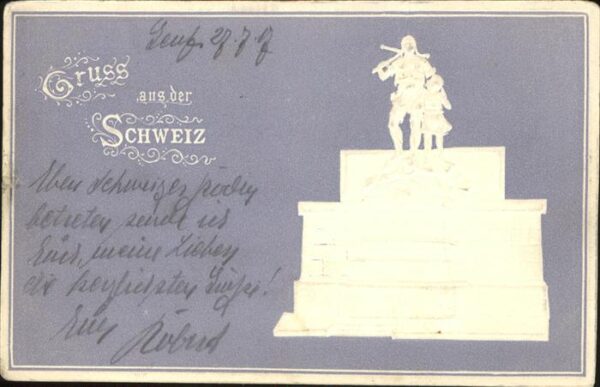 Genf. 27.7.07
Gruss
aus der
SCHWEIZ
Eben Schweizer Boden
betreten sende ich
Euch, meine Lieben
die herzlichsten Grüße!
Euer
Robert